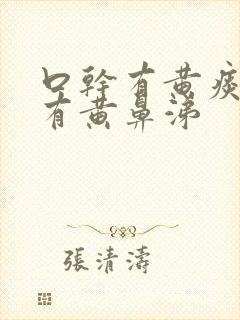 口幹有黄痰
有黄鼻涕
張清濤